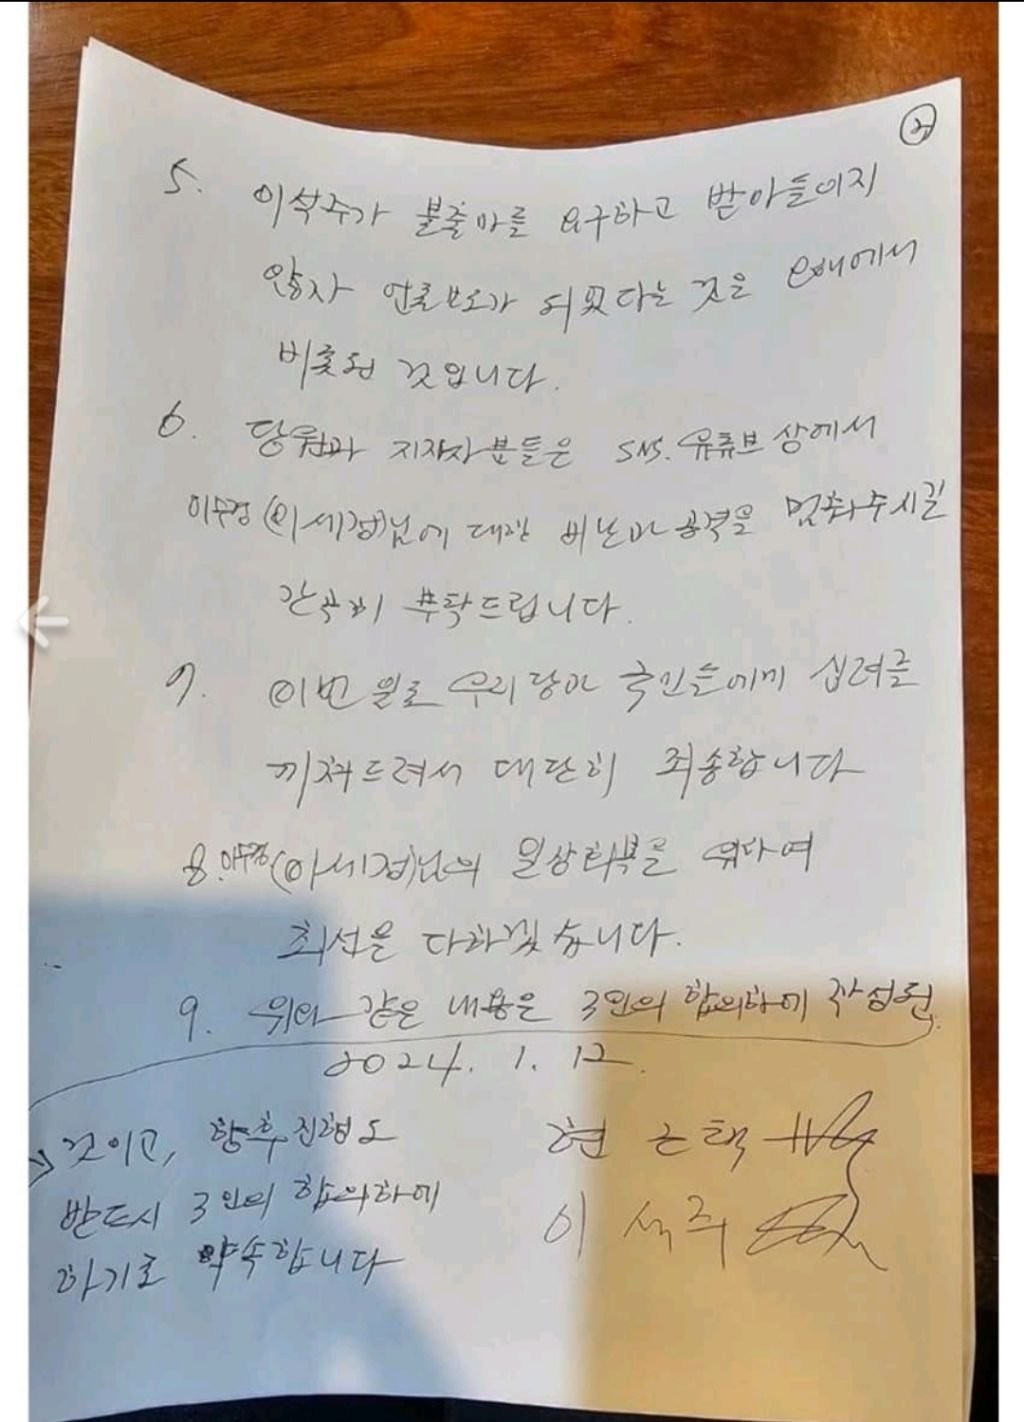 ②
5. 이석주가 불출마를 요구하고 받아들이지
않자 언론보도가 되었다는 것은 오해에서
비롯된 것입니다.
6. 당원과 지지자분들은 SNS. 유튜브 상에서
(이세경)님에 대한 비난과 공격을 멈춰주시길
간곡히 부탁드립니다.
7. 이번 일로 우리당과 국민들에게 심려를
끼쳐드려서 대단히 죄송합니다
8. (이세경)님의 일상회복을 위하여
최선을 다하겠습니다.
9. 위와 같은 내용은 3인의 합의하에 작성된
것이고, 향후 진행도
반드시 3인의 합의하에
하기로 약속합니다
2024. 1. 12.
현 근택
이 석주